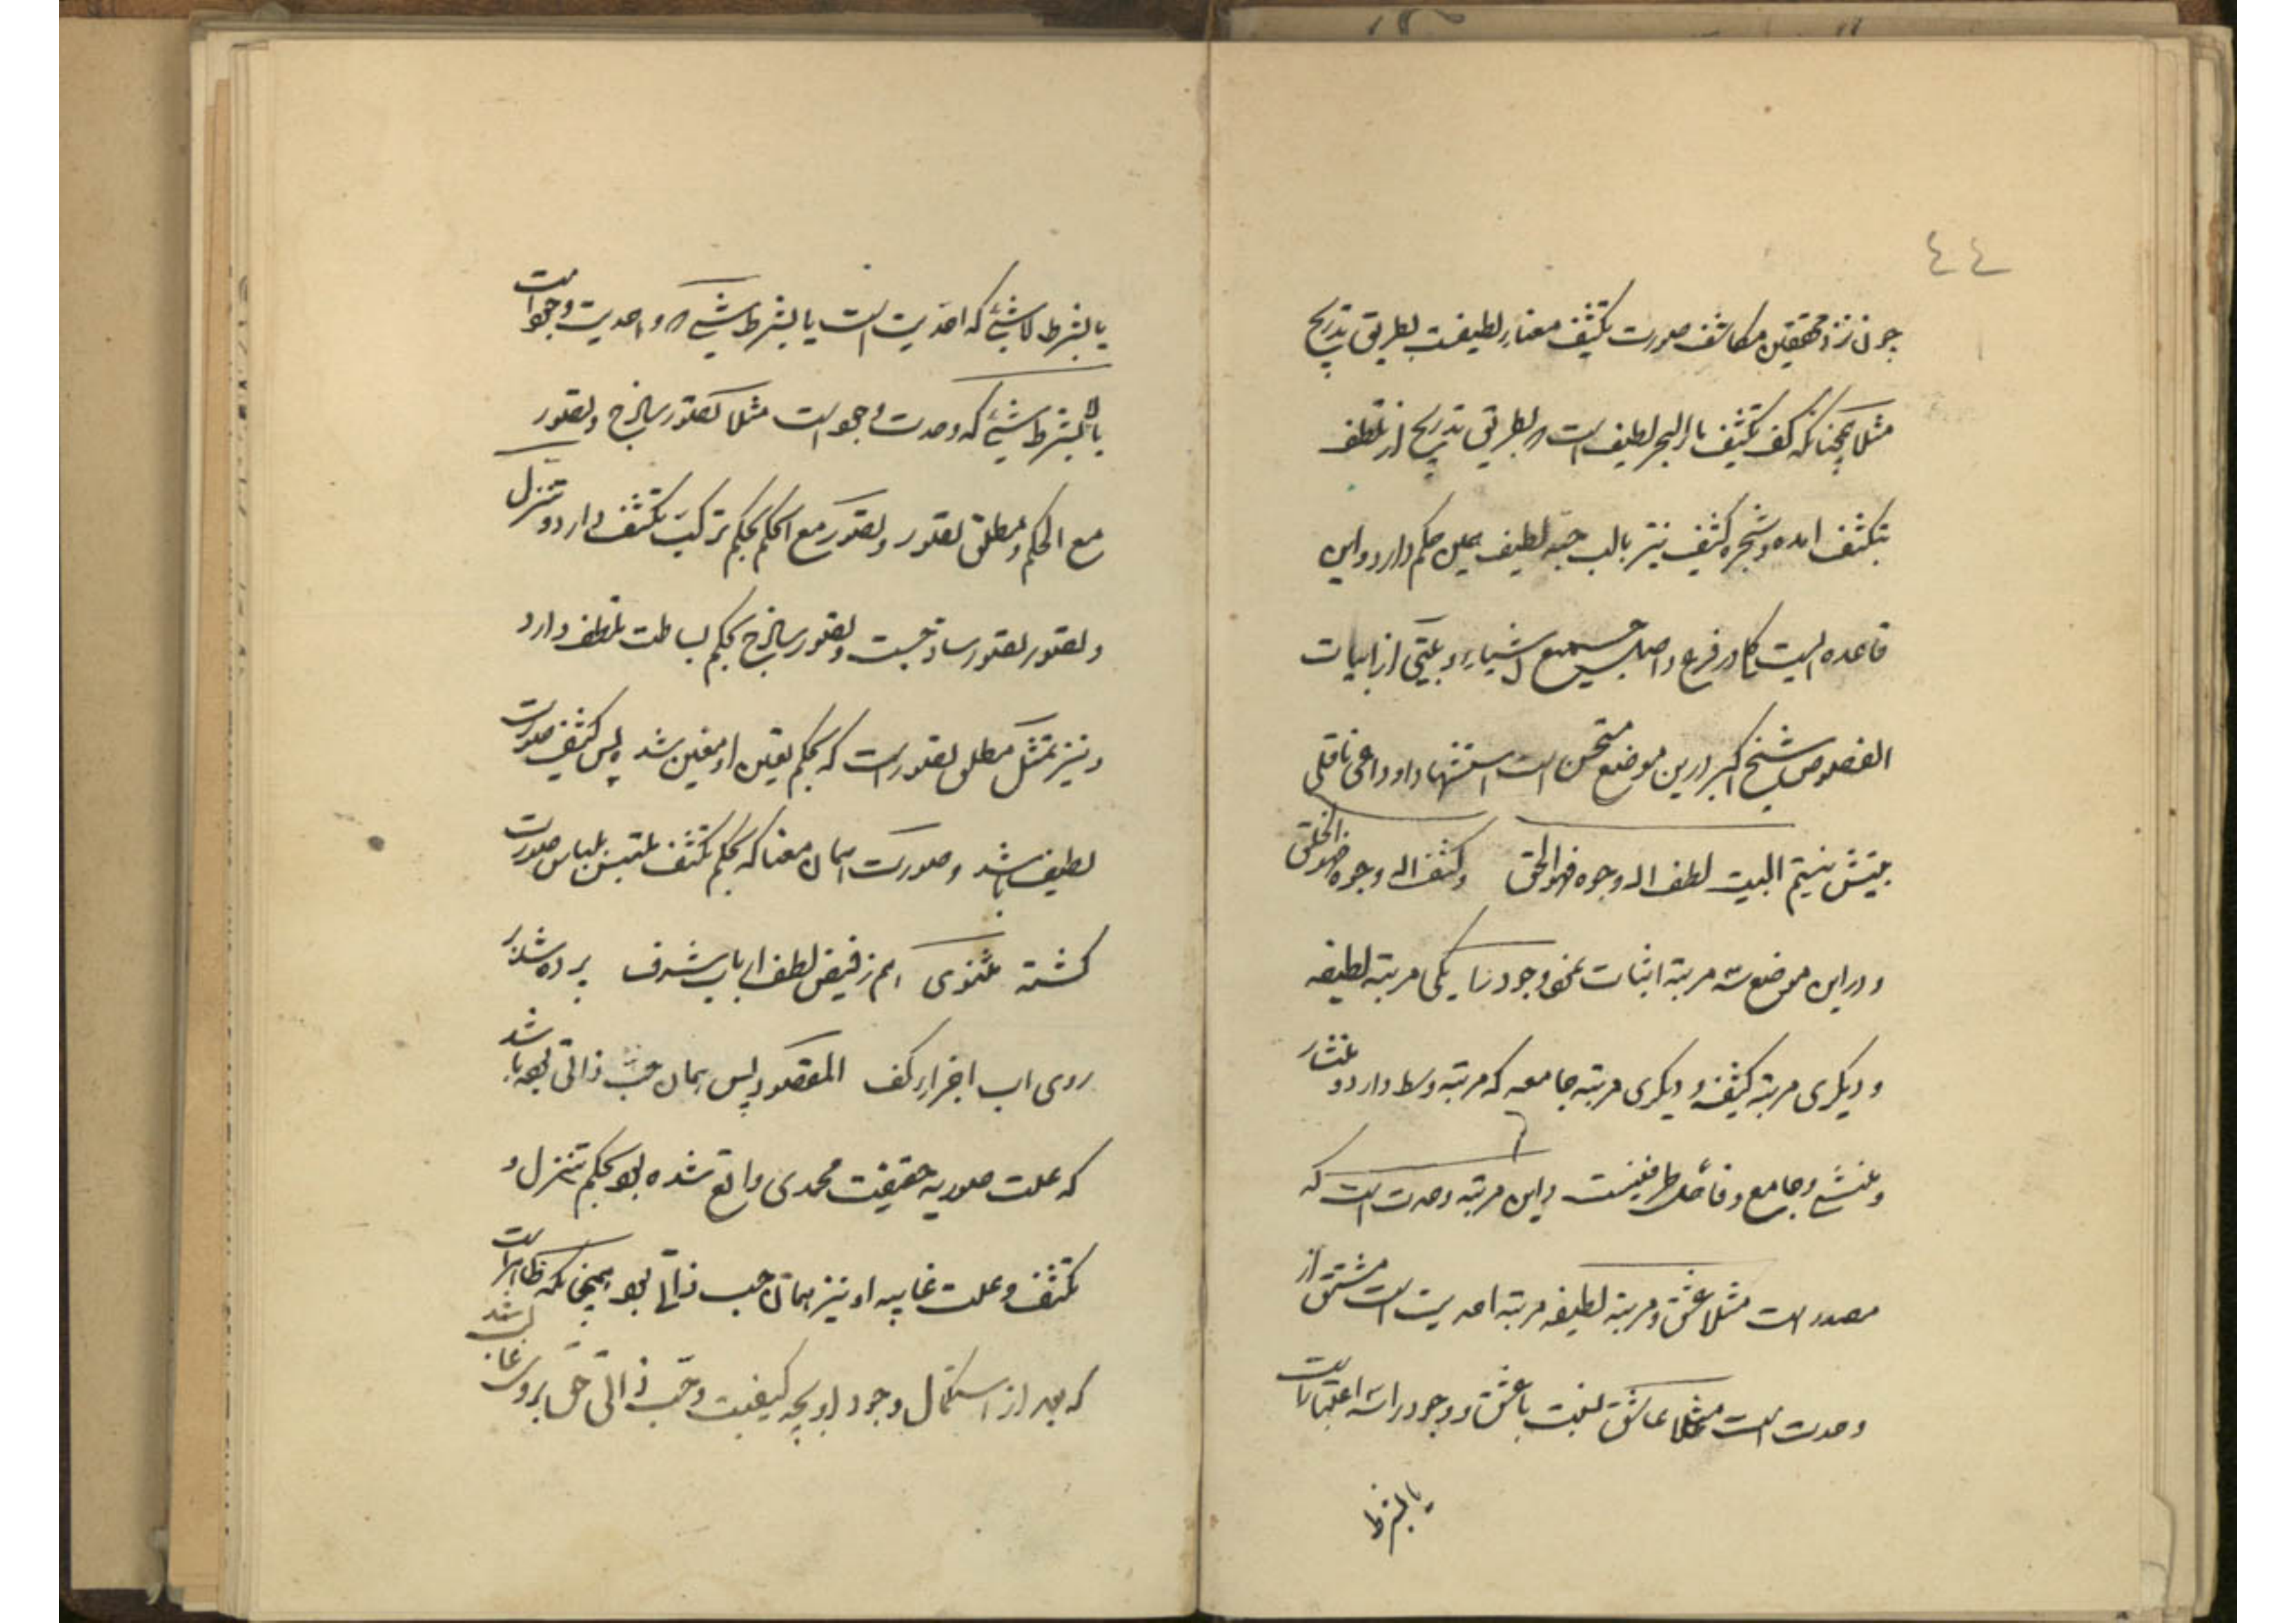 ٤٤
چون نزد محققین مکاشف صورت تکثیف معنای لطیفست بطریق تدریج
مثلا همچنانکه کف کثیف با البحر لطیف است بطریق تدریج از تلطف
بتکثف امده و شجره کثیف نیز بالب حبه لطیف همین حکم دارد و این
قاعده ایست در فرع و اصل جمیع اشیاء و بیتی از ابیات
الفصوص شیخ اکبر درین موضع مستحسن است استشهاد او داعی ناقلی
بیتش نیتم البیت لطف الی وجوه فهو الحق وکثف الی وجوه فهو الخلق
و در این موضع سه مرتبه اثبات نحو وجود را یکی مرتبه لطیفه
و دیگری مرتبه کثیفه و دیگری مرتبه جامعه که مرتبه وسط دارد و منشا
و منشئ و جامع و فاصل طرفینست و این مرتبه وحدت است که
مصدر است مثلا عشق و مرتبه لطیفه مرتبه احدیت است مشتق از
وحدت است مثلا عاشق نسبت با عشق و وجود را سه اعتبار است
یا بشرط
یا بشرط لاشیئ که احدیت است یا بشرط شیئ و واحدیت وجود است
یا لا بشرط شیئ که وحدت وجود است مثلا تصور ساذج و تصور
مع الحکم و مطلق تصور و تصور مع الحکم بحکم ترکیب تکثف دارد و تنزل
و تصور تصور ساذجست و تصور ساذج بحکم بساطت تلطف دارد
و نیز تمثل مطلق تصور است که بحکم تعین او معین شد پس کثیف صورت
لطیف باشد و صورت همان معنا که بحکم تکثف ملتبس بلباس صورت
کشته مثنوی هم ز فیض لطف ارباب شرف پرده شد بر
روی اب اجزاء کف المقصود پس همان حب ذاتی بوده باشد
که علت صوریه حقیقت محمدی واقع شده بود بحکم تنزل و
تکثف و علت غاییه او نیز همان حب ذاتی بود همچنانکه ظاهر است
که بعد از استکمال وجود او بچه کیفیت و حب ذاتی حق بروی غالب شد